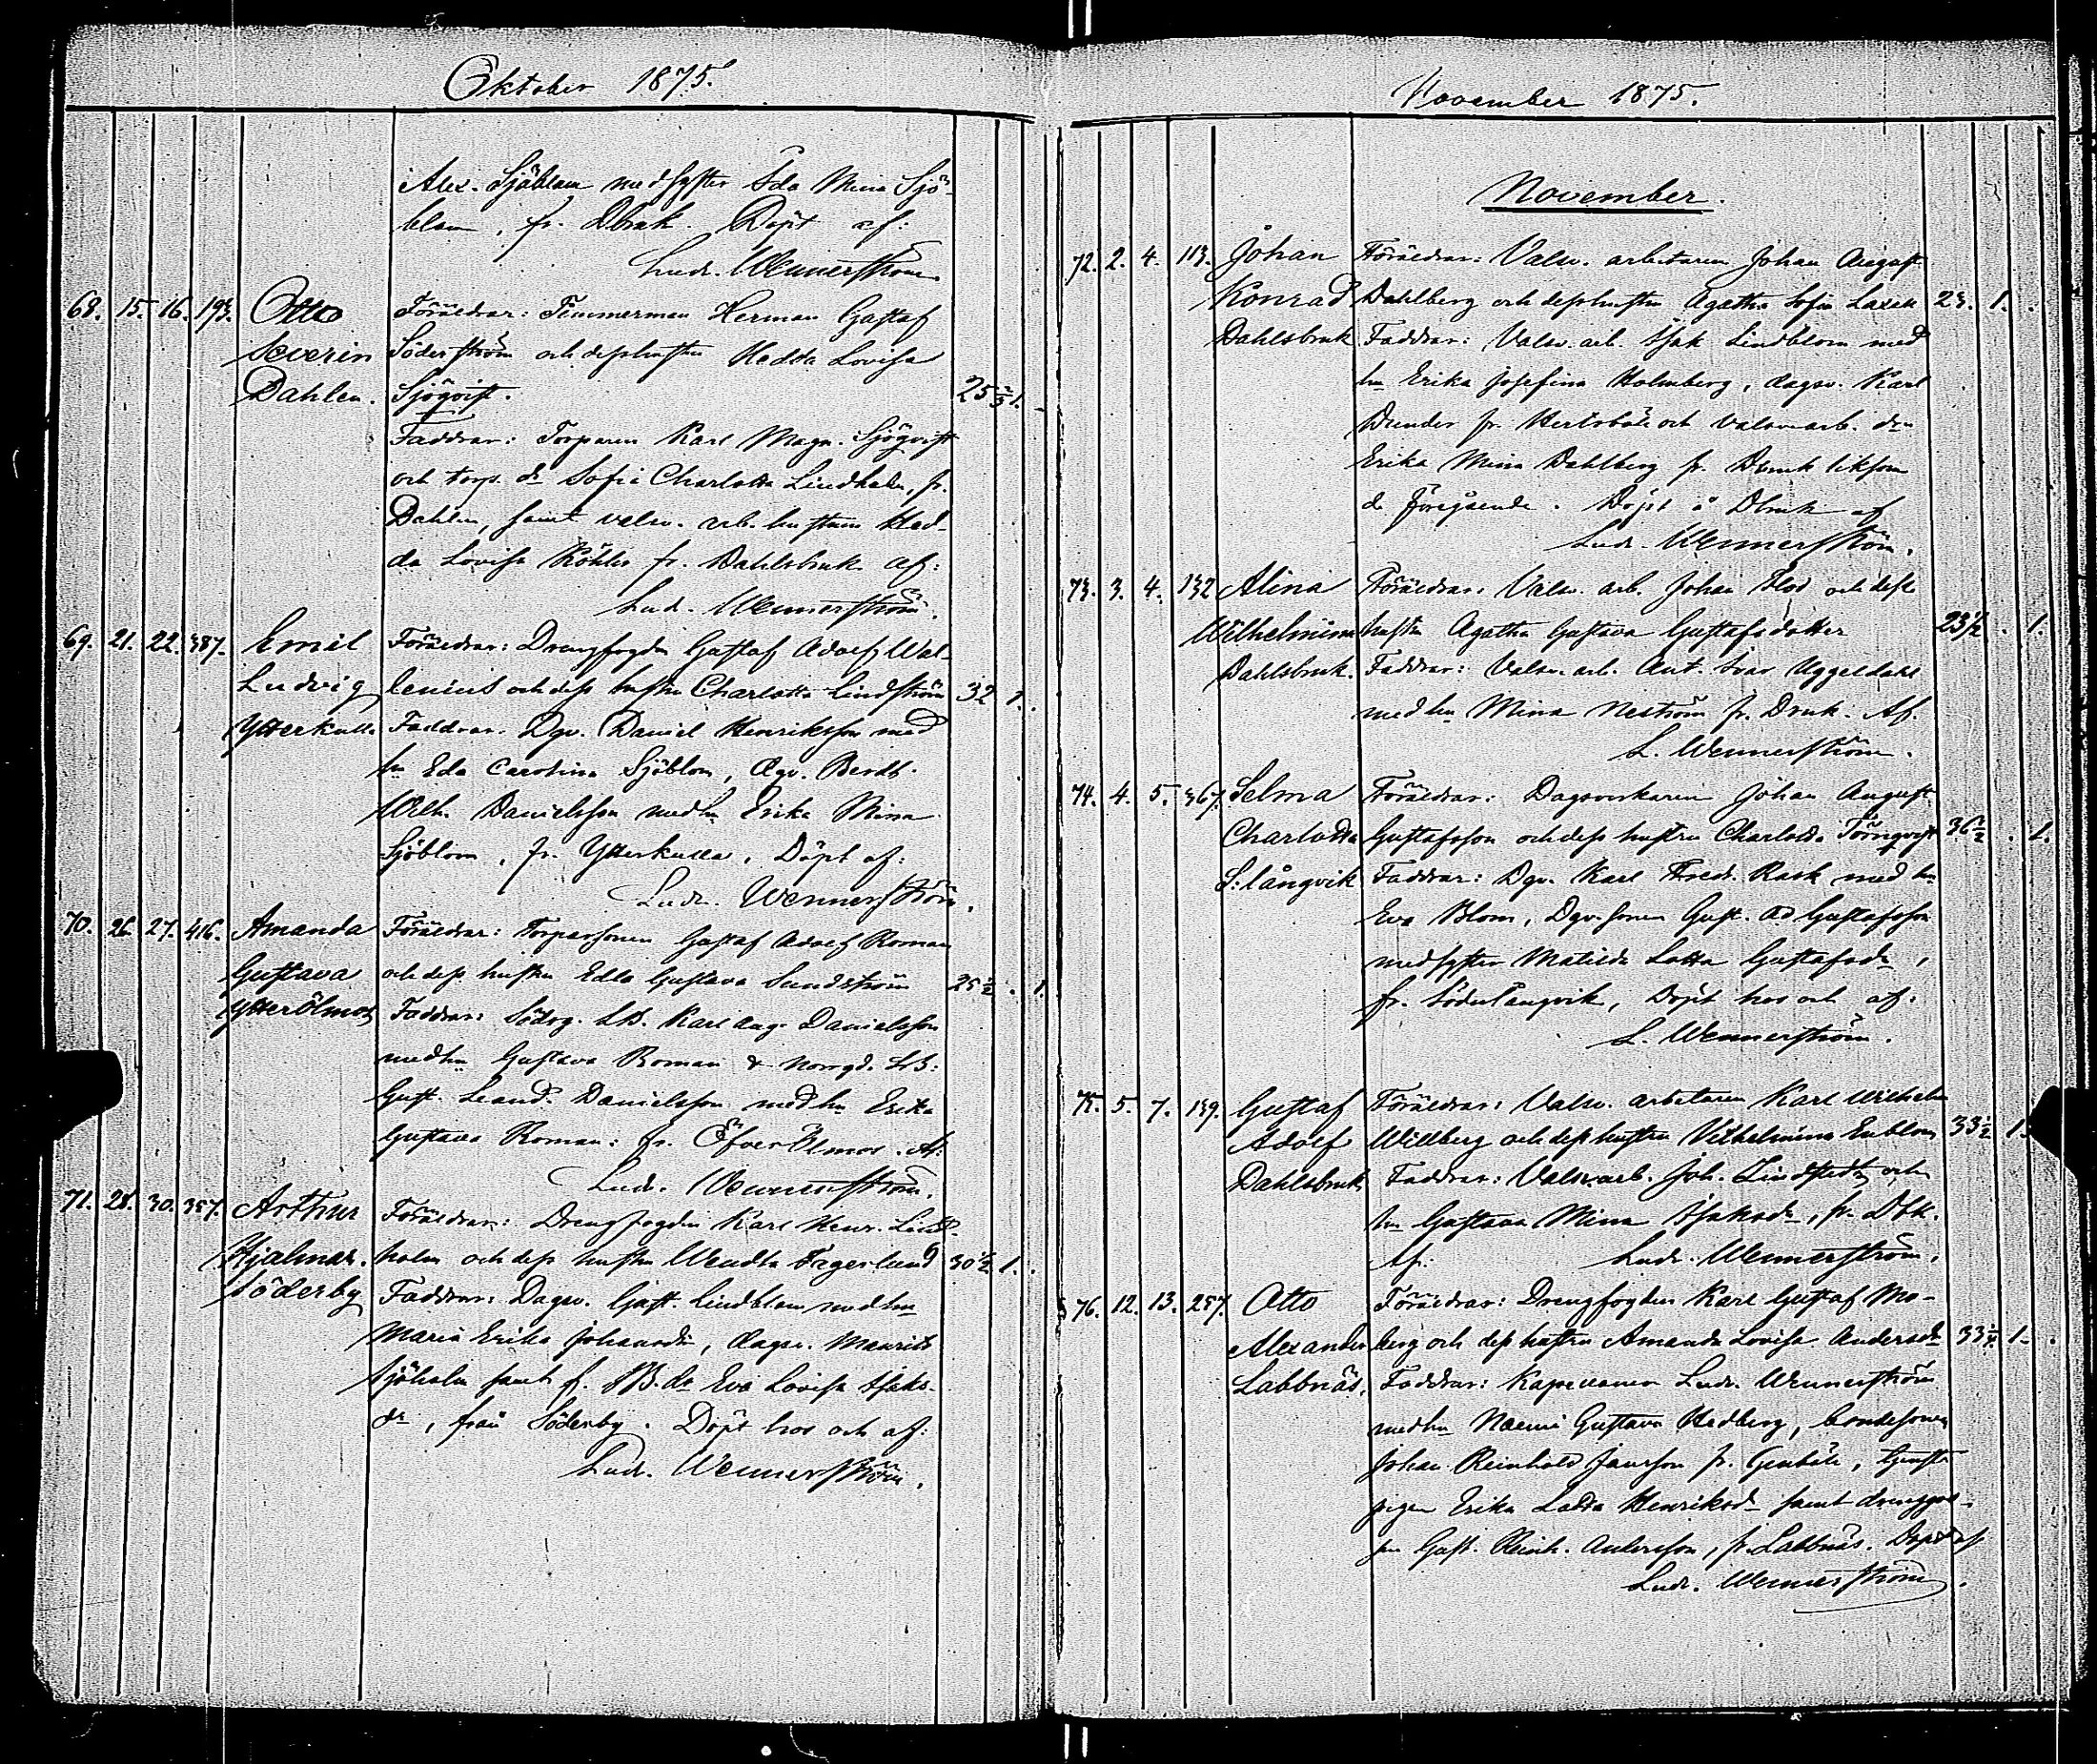 Oktober 1875.
Alex. Sjöblom med syster Ida Mina Sjö-
blom, fr. Dbruk. Döpt af:
Ludv. Wennerström.
68. 15. 16. 193. Otto Föräldrar: Timmerman Herman Gustaf
Severin Söderström och dess hustru Hedda Lovisa
Dahlen. Sjöqvist. 25 2/3 1.
Faddrar: Torparen Karl Magn. Sjöqvist
och torp. dr Sofia Charlotta Lindholm, fr.
Dahlen, samt valsv. arb. hustrun Hed-
da Lovisa Köhler fr. Dahlsbruk af:
Lud. Wennerström.
69. 21. 22. 387. Emil Föräldrar: Drengfogden Gustaf Adolf Wal-
Ludvig lenius och dess hustru Charlotta Lindström 32 1.
Ytterkulla Faddrar. Dgv. Daniel Henriksson med
hu Eda Carolina Sjöblom, dgv. Berndt
Wilh. Danielsson med hu Erika Mina
Sjöblom, fr. Ytterkulla. Döpt af:
Ludv. Wennerström.
70. 26. 27. 416. Amanda Föräldrar: Torparsonen Gustaf Adolf Roman
Gustava och dess hustru Edla Gustava Sundström 25 1/2 . 1.
Ytterölmos Faddrar: Södrg. LB. Karl Aug. Danielsson
med hu Gustava Roman & norrgd. LB:
Gust. Leand. Danielsson med hu Erika
Gustava Roman: fr. Öfver Ölmos. Af:
Ludv. Wennerström.
71. 28. 30. 357. Arthur Föräldrar: Drengfogden Karl Henr. Lind-
Hjalmar. holm och dess hustru Wendla Fagerlund 30 1/2 1.
Söderby Faddrar: Dagsv. Gust. Lindblom med hu
Maria Erika Johansdr, dagsv. Maurits
Sjöholm samt f. B. dr Eva Lovisa Isaks-
dr, från Söderby. Döpt hos och af:
Ludv. Wennerström.
November 1875.
November.
72. 2. 4. 113. Johan Föräldrar: Valsv. arbetaren Johan August
Konrad Dahlberg och dess hustru Agatha Sofia 23. 1.
Dahlsbruk Faddrar: Valsv. arb. Isak Lindblom med
hu Erika Josefina Holmberg, dagsv. Karl
fr. Hertsböle och valsv. arb. drn
Erika Mina Dahlberg fr. Dbruk liksom
de föregående. Döpt å Dbruk af
Ludv. Wennerström.
73. 3. 4. 132 Alina Föräldrar: Valsv. arb. Johan Flod och dess
Wilhelmina hustru Agatha Gustava Gustafsdotter 23 1/2 . 1.
Dahlsbruk. Faddrar: Valsv. arb. Ant. Ivar Uggeldahl
med hu Mina Neström fr. Dbruk. Af.
L. Wennerström.
74. 4. 5. 367. Selma Föräldrar: Dagsverkaren Johan August
Charlotta Gustafsson och dess hustru Charlotta Törnqvist 36 1/2 . 1.
S:långvik Faddrar: Dgv. Karl Fred. Rask med hu
Eva Blom, Dgv. sonen Gust. Ad Gustafsson
med syster Matilda Lotta Gustafsdr,
fr. Söderlångvik, Döpt hos och af:
L. Wennerström.
75. 5. 7. 139. Gustaf Föräldrar: Valsv. arbetaren Karl Wilhelm
Adolf Willberg och dess hustru Vilhelmina Enblom 33 1/2 1.
Dahlsbruk Faddrar: Valsv. arb. Joh. Lindstedt och
hu Gustava Mina Isaksdr, fr. Dbk.
Af: Ludv. Wennerström.
76. 12. 13. 257. Otto Föräldrar: Drengfogden Karl Gustaf Mo-
Alexander berg och dess hustru Amanda Lovisa Andersdr 33 1/4 1.
Labbnäs. Faddrar: Kapellanen Ludv. Wennerström
med hu Naemi Gustava Hedberg, bondesonen
Johan Reinhold Jansson fr. Genböle, tjenste
pigan Erika Lotta Henriksdr samt drenggos-
sen Gust. Reinh. Andersson, fr. Labbnäs. Döpt af
Ludv. Wennerström.